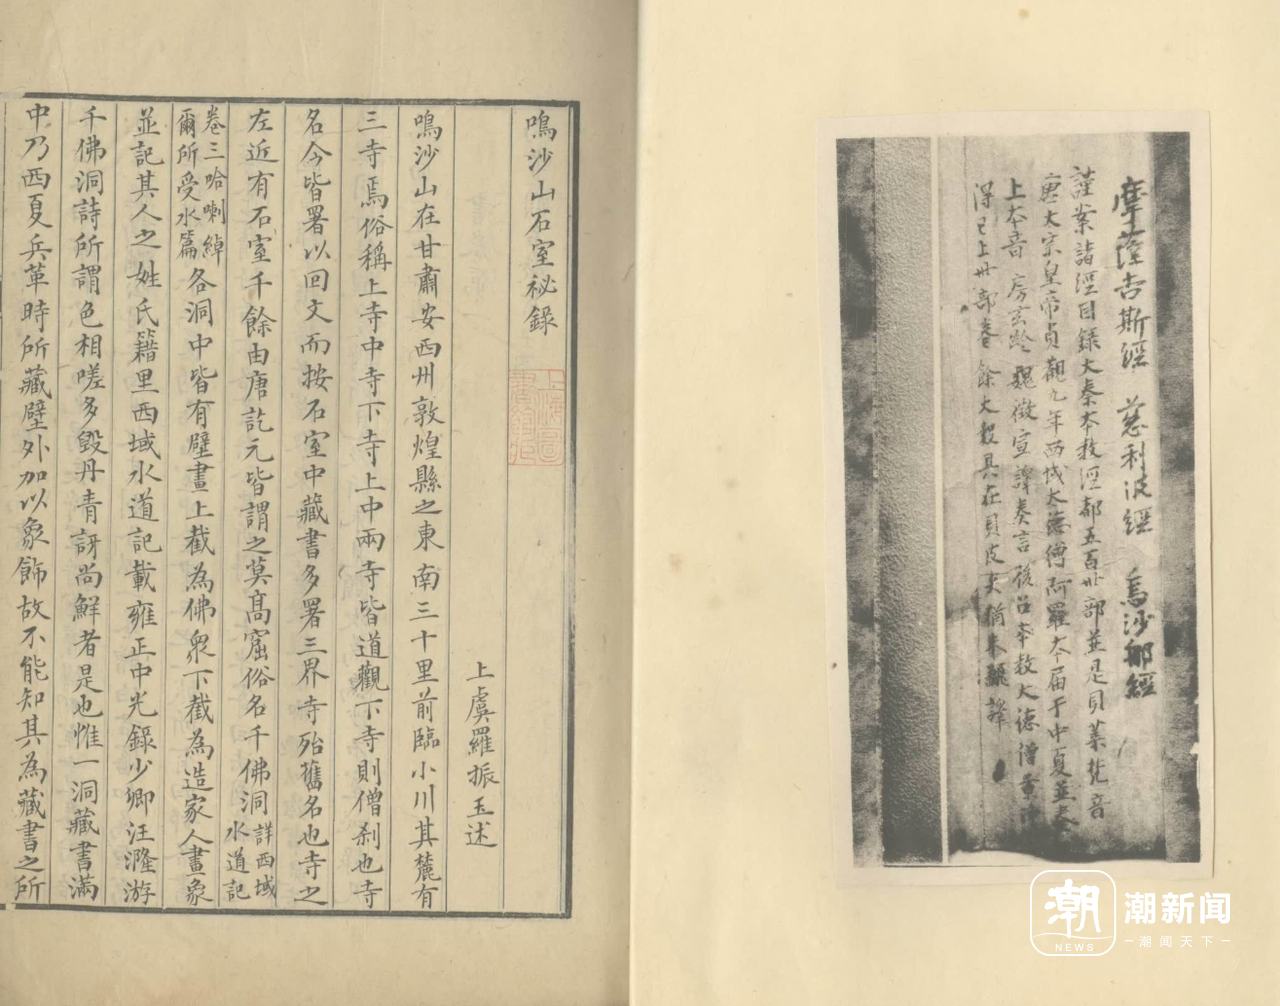 摩薩吉斯經 慈利波經 烏沙那經
謹案諸經目錄大秦本教經都五百卅部並是貝葉梵音
唐太宗皇帝貞觀九年西域太德僧阿羅本屆于中夏並奏
上本音 房玄齡 魏徵宣譯奏言後召本教大德僧景
得已上卅部卷 餘大數具在貝皮夾猶未翻譯
鳴沙山石室祕錄
上虞羅振玉述
鳴沙山在甘肅安西州敦煌縣之東南三十里前臨小川其麓有
三寺焉俗稱上寺中寺下寺上中兩寺皆道觀下寺則僧刹也寺
名今皆署以回文而按石室中藏書多署三界寺殆舊名也寺之
左近有石室千餘由唐訖元皆謂之莫高窟俗名千佛洞詳西域水道記
卷三哈喇綽爾所受水篇各洞中皆有壁畫上截為佛衆下截為造家人畫象
並記其人之姓氏籍里西域水道記載雍正中光錄少卿汪漋游
千佛洞詩所謂色相嗟多毀丹青訝尚鮮者是也惟一洞藏書滿
中乃西夏兵革時所藏壁外加以象飾故不能知其為藏書之所
上海圖書館藏
潮
NEWS
潮新闻
潮闻天下